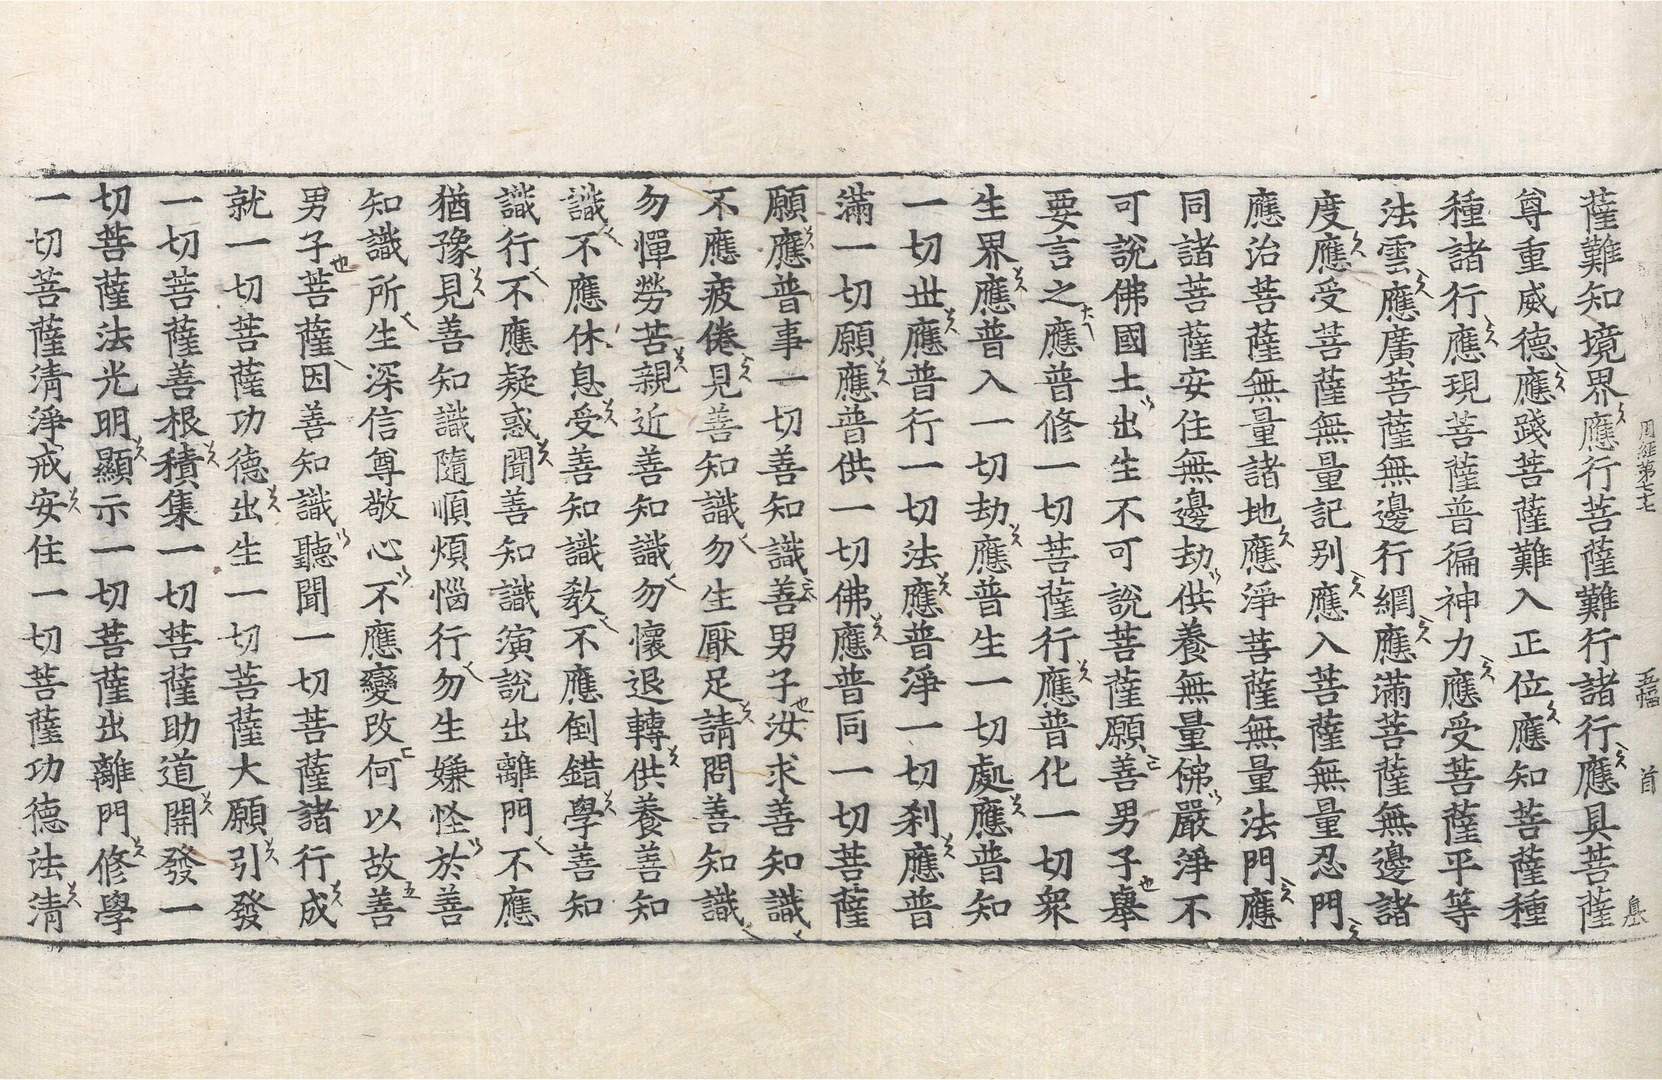 周經第七十七　五幅　首
薩難知境界應行菩薩難行諸行應具菩薩
尊重威德應踐菩薩難入正位應知菩薩種
種諸行應現菩薩普徧神力應受菩薩平等
法雲應廣菩薩無邊行網應滿菩薩無邊諸
度應受菩薩無量記别應入菩薩無量忍門
應治菩薩無量諸地應淨菩薩無量法門應
同諸菩薩安住無邊劫供養無量佛嚴淨不
可說佛國土出生不可說菩薩願善男子舉
要言之應普修一切菩薩行應普化一切衆
生界應普入一切劫應普生一切處應普知
一切世應普行一切法應普淨一切刹應普
滿一切願應普供一切佛應普同一切菩薩
願應普事一切善知識善男子汝求善知識
不應疲倦見善知識勿生厭足請問善知識
勿憚勞苦親近善知識勿懷退轉供養善知
識不應休息受善知識教不應倒錯學善知
識行不應疑惑聞善知識演說出離門不應
猶豫見善知識隨順煩惱行勿生嫌怪於善
知識所生深信尊敬心不應變改何以故善
男子菩薩因善知識聽聞一切菩薩諸行成
就一切菩薩功德出生一切菩薩大願引發
一切菩薩善根積集一切菩薩助道開發一
切菩薩法光明顯示一切菩薩出離門修學
一切菩薩清淨戒安住一切菩薩功德法清